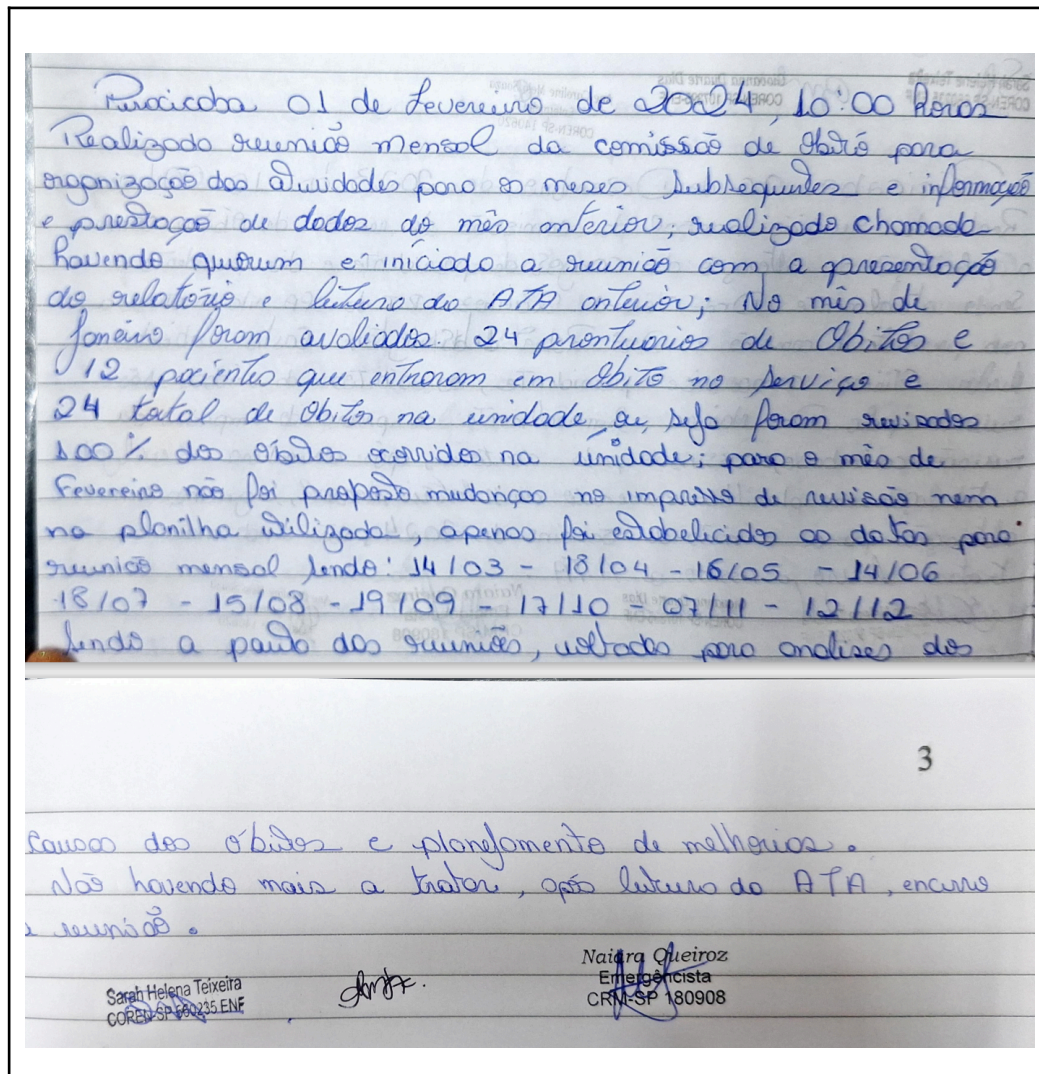 Piracicaba 01 de Fevereiro de 2024, 10:00 horas
Realizado reunião mensal da comissão de Obito para
organização das atividades para os meses subsequentes e informação
e prestação de dados do mês anterior; realizado chamada
havendo quórum e iniciado a reunião com a apresentação
do relatório e leitura da ATA anterior; No mês de
Janeiro foram avaliados 24 prontuarios de Obitos e
12 pacientes que entraram em Obito no serviço e
24 total de Obitos na unidade, ou seja foram revisados
100% dos óbitos ocorridos na unidade; para o mês de
Fevereiro não foi proposto mudanças no impresso de revisão nem
na planilha utilizada, apenas foi estabelecidos as datas para
reunião mensal sendo: 14/03 - 18/04 - 16/05 - 14/06
18/07 - 15/08 - 19/09 - 17/10 - 07/11 - 12/12
sendo a pauta das reuniões, voltadas para analises das
3
causas dos óbitos e planejamento de melhorias.
Não havendo mais a tratar, após leitura da ATA, encerro
a reunião.
Sarah Helena Teixeira
COREN-SP 560235.ENF
Naiara Queiroz
Emergêncista
CRM-SP 180908